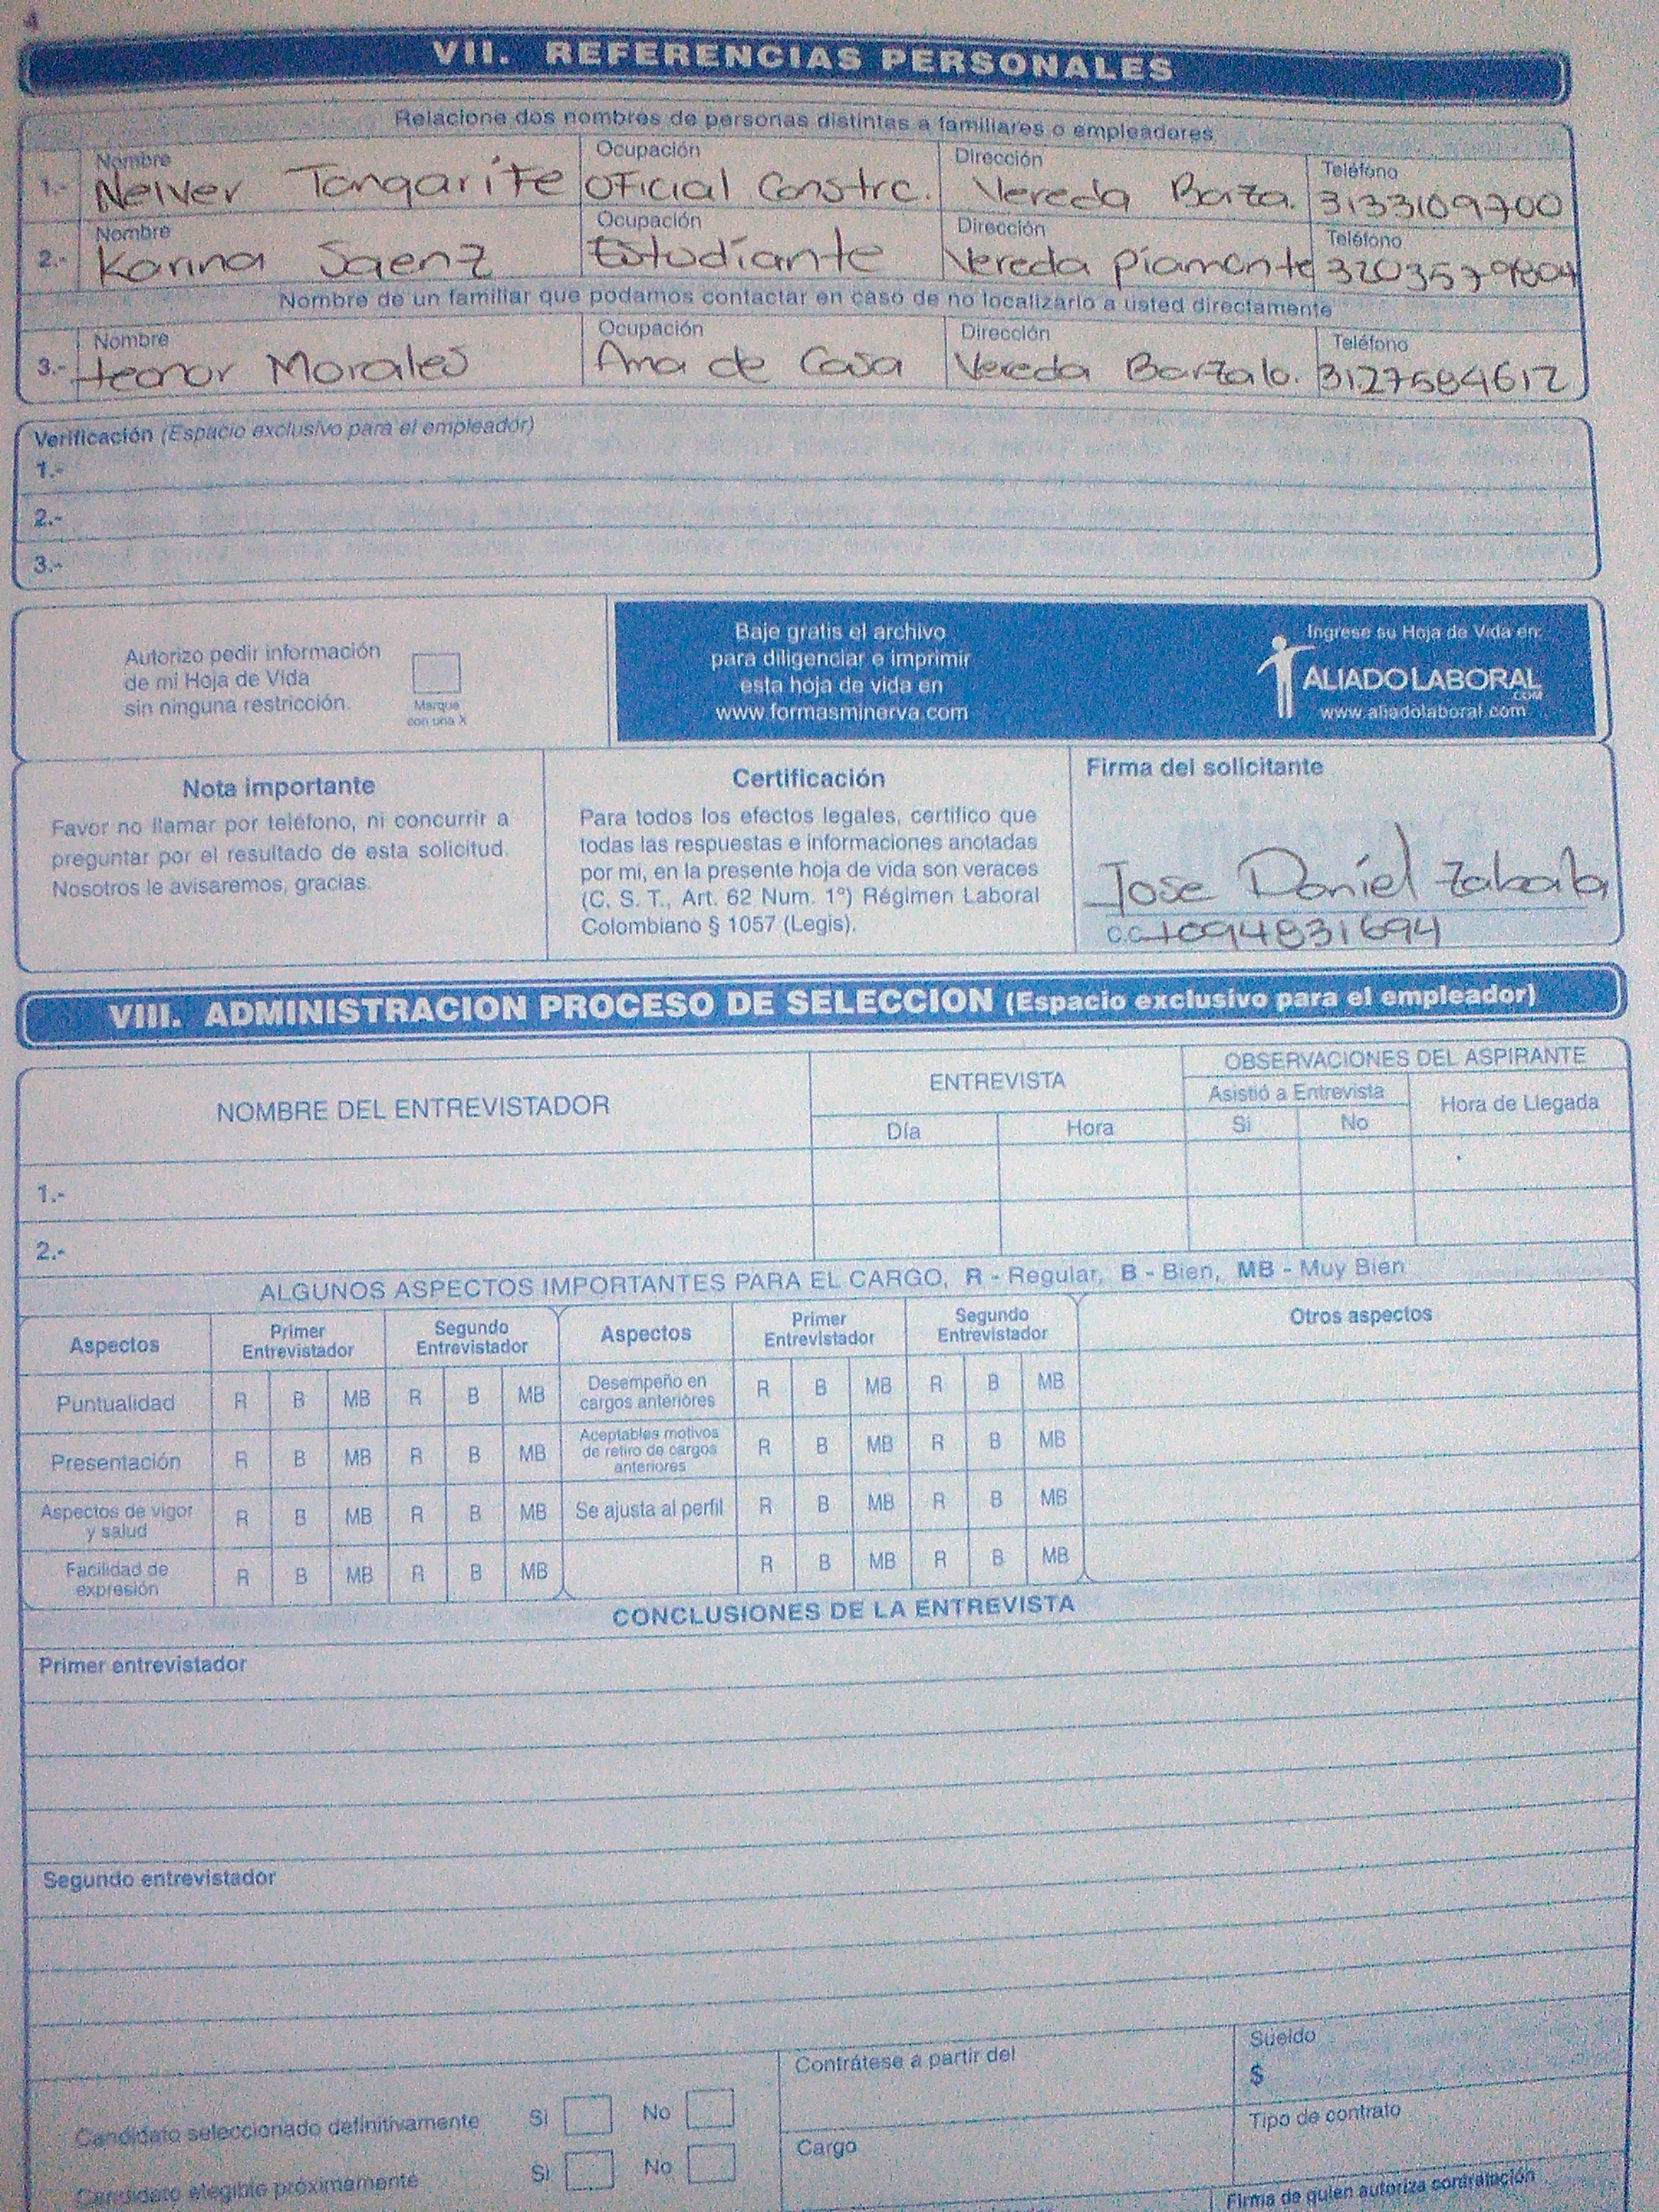 4
VII. REFERENCIAS PERSONALES
Relacione dos nombres de personas distintas a familiares o empleadores
Nombre Ocupación Dirección Teléfono
1.- Neiver Tangarife Oficial Constrc. Vereda Barza. 3133109700
Nombre Ocupación Dirección Teléfono
2.- Karina Saenz Estudiante Vereda Piamonte 3203579804
Nombre de un familiar que podamos contactar en caso de no localizarlo a usted directamente
Nombre Ocupación Dirección Teléfono
3.- Leonor Morales Ama de Casa Vereda Barzalo. 3127584612
Verificación (Espacio exclusivo para el empleador)
1.-
2.-
3.-
Autorizo pedir información
de mi Hoja de Vida
sin ninguna restricción.
Marque
con una X
Baje gratis el archivo
para diligenciar e imprimir
esta hoja de vida en
www.formasminerva.com
Ingrese su Hoja de Vida en:
ALIADOLABORAL
.COM
www.aliadolaboral.com
Nota importante
Favor no llamar por teléfono, ni concurrir a
preguntar por el resultado de esta solicitud.
Nosotros le avisaremos, gracias.
Certificación
Para todos los efectos legales, certifico que
todas las respuestas e informaciones anotadas
por mi, en la presente hoja de vida son veraces
(C. S. T., Art. 62 Num. 1°) Régimen Laboral
Colombiano § 1057 (Legis).
Firma del solicitante
Jose Daniel Zabala
C.C. 1094831694
VIII. ADMINISTRACION PROCESO DE SELECCION (Espacio exclusivo para el empleador)
NOMBRE DEL ENTREVISTADOR ENTREVISTA OBSERVACIONES DEL ASPIRANTE
Asistió a Entrevista Hora de Llegada
Día Hora Si No
1.-
2.-
ALGUNOS ASPECTOS IMPORTANTES PARA EL CARGO, R - Regular, B - Bien, MB - Muy Bien
Aspectos Primer Entrevistador Segundo Entrevistador Aspectos Primer Entrevistador Segundo Entrevistador Otros aspectos
Puntualidad R B MB R B MB Desempeño en cargos anteriores R B MB R B MB
Presentación R B MB R B MB Aceptables motivos de retiro de cargos anteriores R B MB R B MB
Aspectos de vigor y salud R B MB R B MB Se ajusta al perfil R B MB R B MB
Facilidad de expresión R B MB R B MB R B MB R B MB
CONCLUSIONES DE LA ENTREVISTA
Primer entrevistador
Segundo entrevistador
Contrátese a partir del
Sueldo
$
Candidato seleccionado definitivamente Si No
Cargo
Tipo de contrato
Candidato elegible próximamente Si No
Firma de quien autoriza contratación